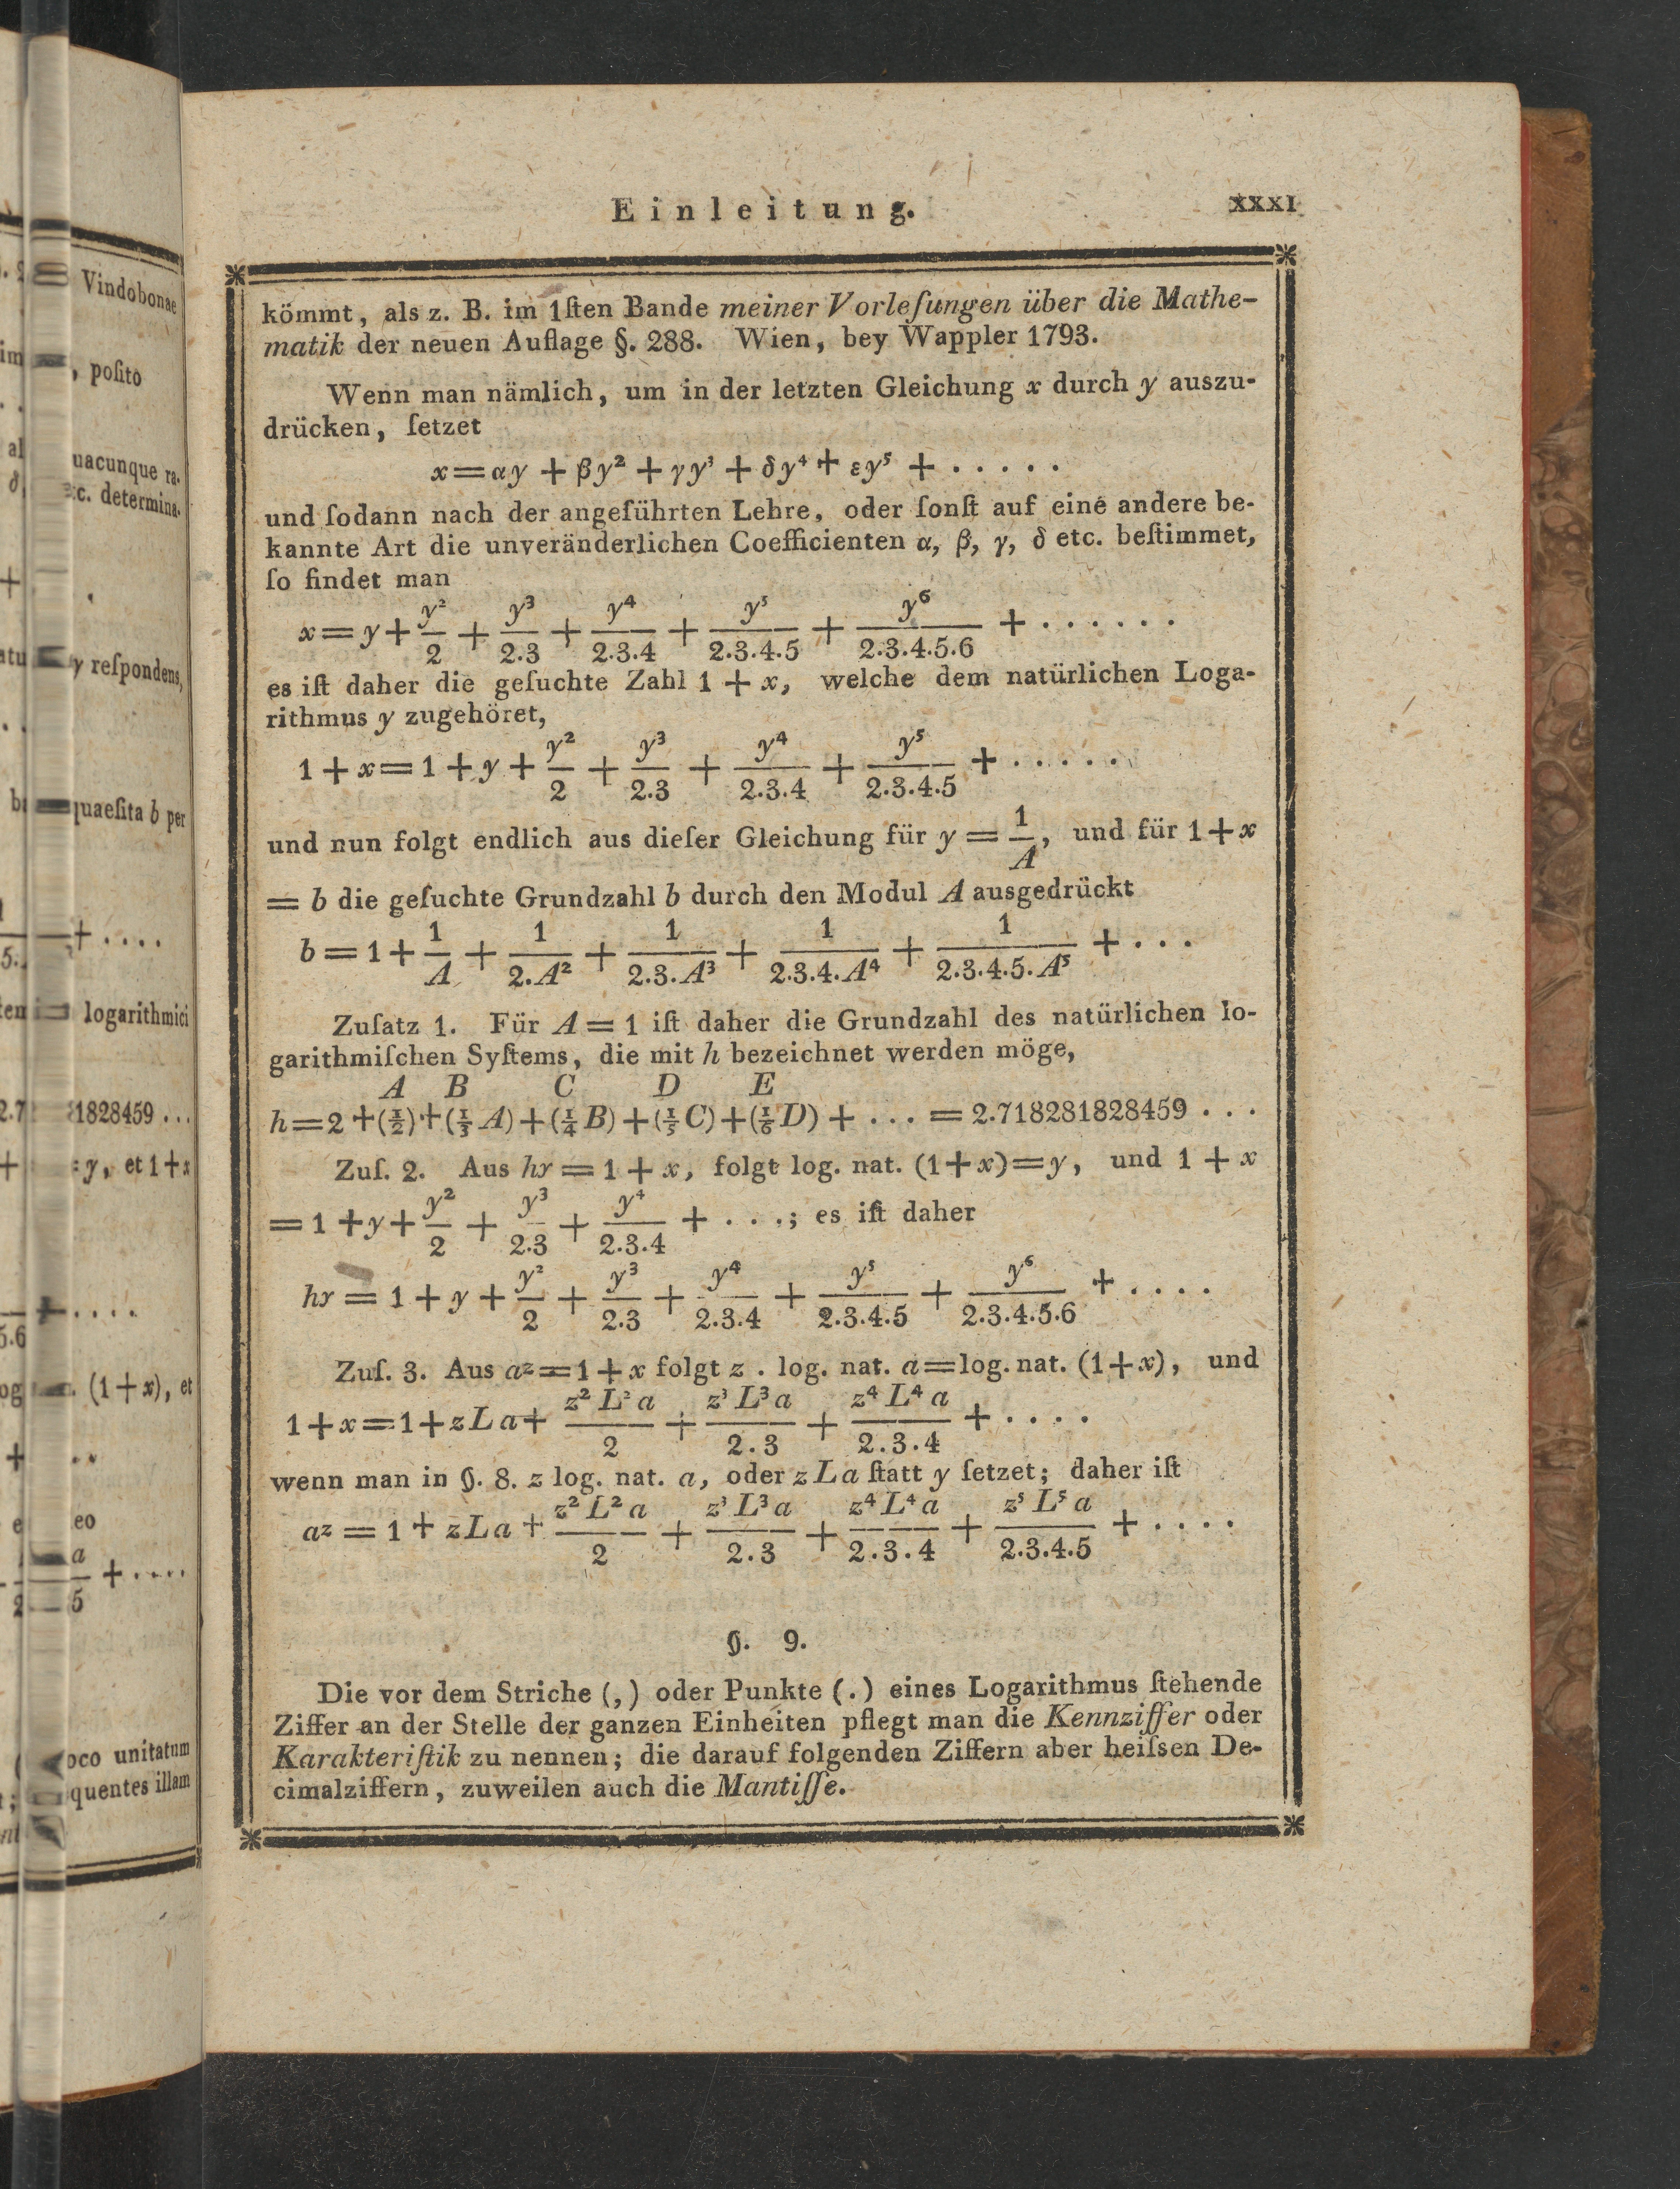 Einleitung. XXXI
kömmt, als z. B. im 1ſten Bande meiner Vorleſungen über die Mathe-
matik der neuen Auflage §. 288. Wien, bey Wappler 1793.
Wenn man nämlich, um in der letzten Gleichung x durch y auszu-
drücken, ſetzet
x = αy + βy² + γy³ + δy⁴ + εy⁵ + . . . . .
und ſodann nach der angeführten Lehre, oder ſonſt auf eine andere be-
kannte Art die unveränderlichen Coefficienten α, β, γ, δ etc. beſtimmet,
ſo findet man
x = y + y²/2 + y³/2.3 + y⁴/2.3.4 + y⁵/2.3.4.5 + y⁶/2.3.4.5.6 + . . . . . .
es iſt daher die geſuchte Zahl 1 + x, welche dem natürlichen Loga-
rithmus y zugehöret,
1 + x = 1 + y + y²/2 + y³/2.3 + y⁴/2.3.4 + y⁵/2.3.4.5 + . . . . . .
und nun folgt endlich aus dieſer Gleichung für y = 1/A, und für 1 + x
= b die geſuchte Grundzahl b durch den Modul A ausgedrückt
b = 1 + 1/A + 1/2.A² + 1/2.3.A³ + 1/2.3.4.A⁴ + 1/2.3.4.5.A⁵ + . . .
Zuſatz 1. Für A = 1 iſt daher die Grundzahl des natürlichen lo-
garithmiſchen Syſtems, die mit h bezeichnet werden möge,
A B C D E
h = 2 + (½) + (⅓ A) + (¼ B) + (⅕ C) + (⅙ D) + . . . = 2.718281828459 . . .
Zuſ. 2. Aus hʸ = 1 + x, folgt log. nat. (1 + x) = y, und 1 + x
= 1 + y + y²/2 + y³/2.3 + y⁴/2.3.4 + . . . .; es iſt daher
hʸ = 1 + y + y²/2 + y³/2.3 + y⁴/2.3.4 + y⁵/2.3.4.5 + y⁶/2.3.4.5.6 + . . . .
Zuſ. 3. Aus aᶻ = 1 + x folgt z . log. nat. a = log. nat. (1 + x), und
1 + x = 1 + z L a + z² L² a/2 + z³ L³ a/2.3 + z⁴ L⁴ a/2.3.4 + . . . .
wenn man in §. 8. z log. nat. a, oder z L a ſtatt y ſetzet; daher iſt
aᶻ = 1 + z L a + z² L² a/2 + z³ L³ a/2.3 + z⁴ L⁴ a/2.3.4 + z⁵ L⁵ a/2.3.4.5 + . . . .
§. 9.
Die vor dem Striche (,) oder Punkte (.) eines Logarithmus ſtehende
Ziffer an der Stelle der ganzen Einheiten pflegt man die Kennziffer oder
Karakteriſtik zu nennen; die darauf folgenden Ziffern aber heiſsen De-
cimalziffern, zuweilen auch die Mantiſſe.
Vindobonae
, poſito
uacunque ra-
c. determina-
y reſpondens,
quaeſita b per
+ . . . .
logarithmici
1828459 . . .
= y, et 1 + x
+ . . . .
(1 + x), et
eo
a
+ . . . .
5
oco unitatum
quentes illam